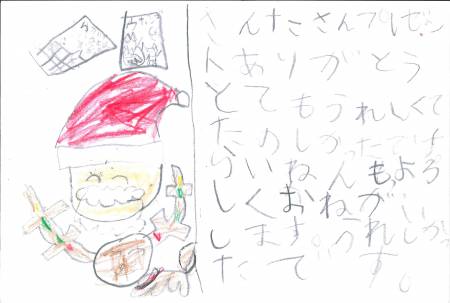 さんたさんプレゼン
トありがとう
とてもうれしくて
たのしかったです
らいねんもよろ
しくおねがい
します。うれしかっ
たです。